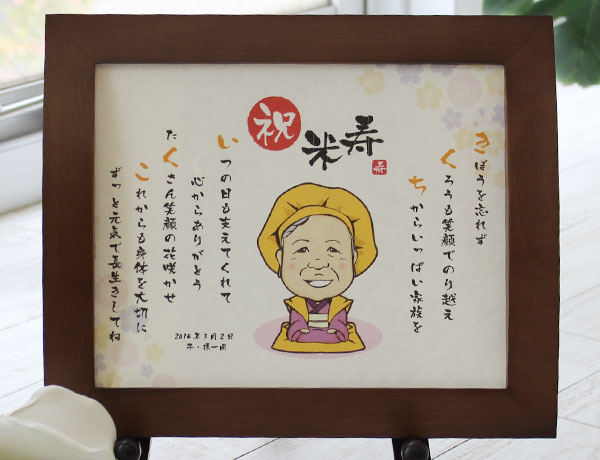 祝
米寿
寿
きぼうを忘れず
くろうも笑顔でのり越え
ちからいっぱい家族を
いつの日も支えてくれて
心からありがとう
たくさん笑顔の花咲かせ
これからも身体を大切に
ずっと元気で長生きしてね
2016年3月2日
子・孫一同